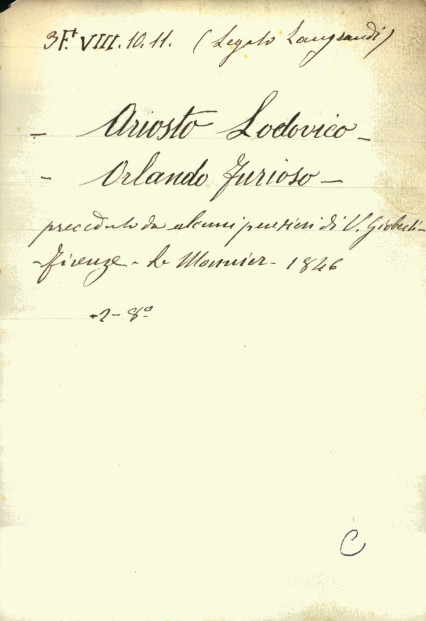 3F.t VIII. 10. 11. (Legato Langrandi)
- Ariosto Lodovico -
- Orlando Furioso -
preceduto da alcuni pensieri di V. Gioberti -
- Firenze - Le Monnier - 1846
- 2 - 8º
C